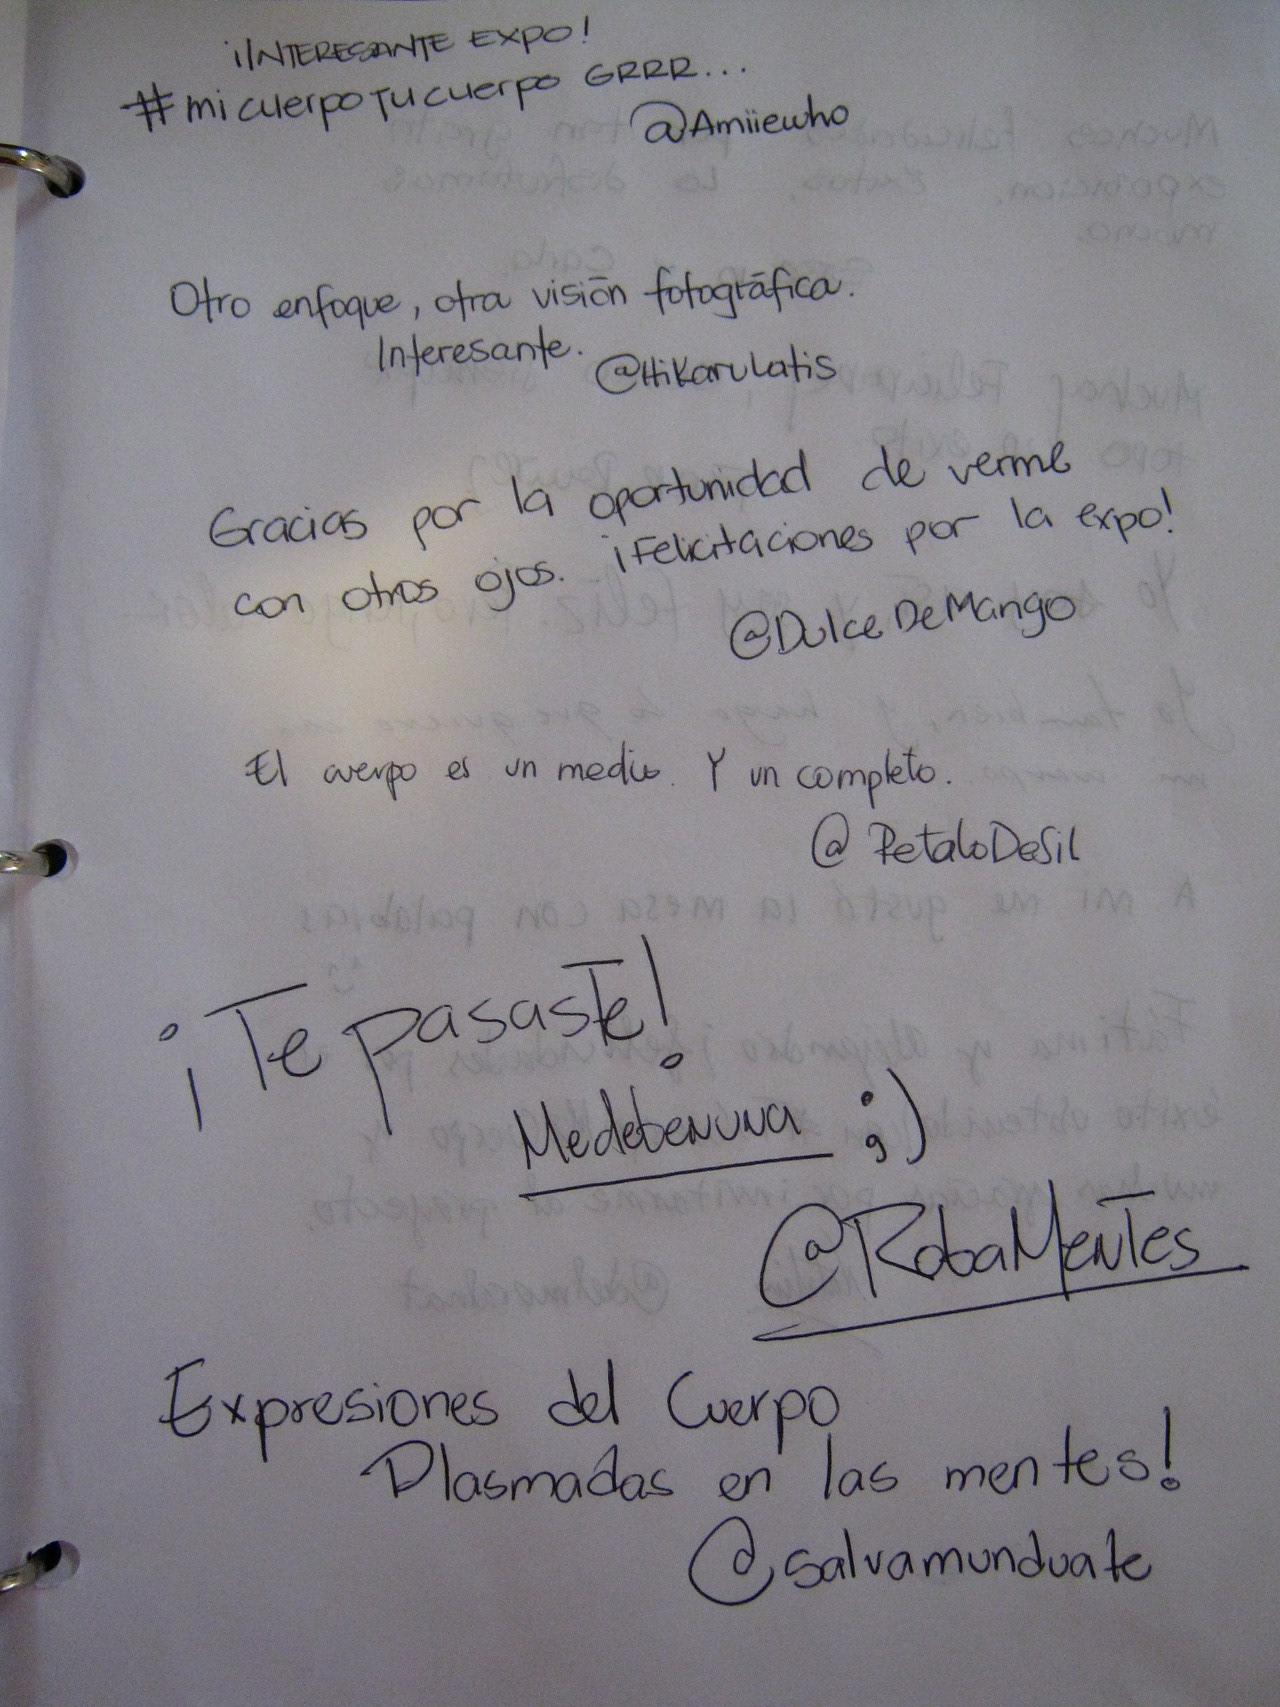 ¡INTERESANTE EXPO!
#micuerpoTucuerpo GRRR...
@Amiiewho
Otro enfoque, otra visión fotográfica.
Interesante.
@HiKaruLatis
Gracias por la oportunidad de verme
con otros ojos. ¡Felicitaciones por la expo!
@DulceDeMango
El cuerpo es un medio. Y un completo.
@PetaloDeSil
¡Te pasaste!
Medebenuna ;)
@RobaMentes
Expresiones del Cuerpo
Plasmadas en las mentes!
@salvamunduate